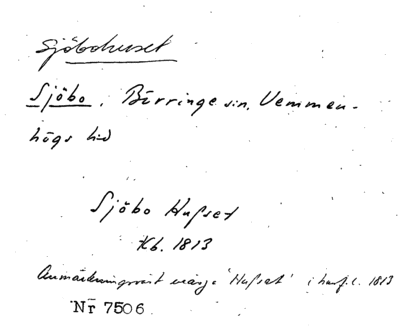 Sjöbohuset
Sjöbo, Börringe sn, Vemmen-
högs hd
Sjöbo Hußet
Hb. 1813
Anmärkningsvärt 'Hußet' i husf.l. 1813
Nr 7506